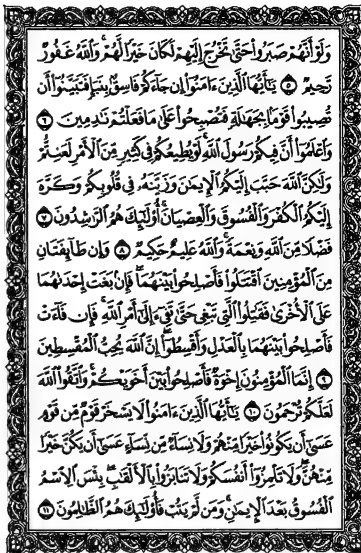 وَلَوْ أَنَّهُمْ صَبَرُوا حَتَّى تَخْرُجَ إِلَيْهِمْ لَكَانَ خَيْرًا لَّهُمْ وَاللَّهُ غَفُورٌ
رَّحِيمٌ ٥ يَا أَيُّهَا الَّذِينَ ءَامَنُوا إِن جَاءَكُمْ فَاسِقٌ بِنَبَإٍ فَتَبَيَّنُوا أَن
تُصِيبُوا قَوْمًا بِجَهَالَةٍ فَتُصْبِحُوا عَلَى مَا فَعَلْتُمْ نَادِمِينَ ٦
وَاعْلَمُوا أَنَّ فِيكُمْ رَسُولَ اللَّهِ لَوْ يُطِيعُكُمْ فِي كَثِيرٍ مِّنَ الْأَمْرِ لَعَنِتُّمْ
وَلَكِنَّ اللَّهَ حَبَّبَ إِلَيْكُمُ الْإِيمَانَ وَزَيَّنَهُ فِي قُلُوبِكُمْ وَكَرَّهَ
إِلَيْكُمُ الْكُفْرَ وَالْفُسُوقَ وَالْعِصْيَانَ أُولَئِكَ هُمُ الرَّاشِدُونَ ٧
فَضْلًا مِّنَ اللَّهِ وَنِعْمَةً وَاللَّهُ عَلِيمٌ حَكِيمٌ ٨ وَإِن طَائِفَتَانِ
مِنَ الْمُؤْمِنِينَ اقْتَتَلُوا فَأَصْلِحُوا بَيْنَهُمَا فَإِن بَغَتْ إِحْدَاهُمَا
عَلَى الْأُخْرَى فَقَاتِلُوا الَّتِي تَبْغِي حَتَّى تَفِيءَ إِلَى أَمْرِ اللَّهِ فَإِن فَاءَتْ
فَأَصْلِحُوا بَيْنَهُمَا بِالْعَدْلِ وَأَقْسِطُوا إِنَّ اللَّهَ يُحِبُّ الْمُقْسِطِينَ
٩ إِنَّمَا الْمُؤْمِنُونَ إِخْوَةٌ فَأَصْلِحُوا بَيْنَ أَخَوَيْكُمْ وَاتَّقُوا اللَّهَ
لَعَلَّكُمْ تُرْحَمُونَ ١٠ يَا أَيُّهَا الَّذِينَ ءَامَنُوا لَا يَسْخَرْ قَوْمٌ مِّن قَوْمٍ
عَسَى أَن يَكُونُوا خَيْرًا مِّنْهُمْ وَلَا نِسَاءٌ مِّن نِّسَاءٍ عَسَى أَن يَكُنَّ خَيْرًا
مِّنْهُنَّ وَلَا تَلْمِزُوا أَنفُسَكُمْ وَلَا تَنَابَزُوا بِالْأَلْقَابِ بِئْسَ الِاسْمُ
الْفُسُوقُ بَعْدَ الْإِيمَانِ وَمَن لَّمْ يَتُبْ فَأُولَئِكَ هُمُ الظَّالِمُونَ ١١